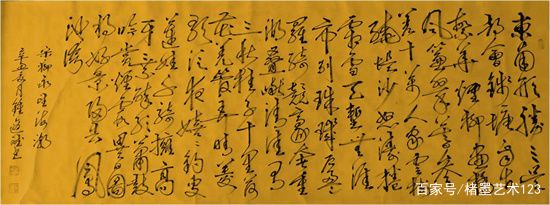 東南形勝三吳
都會錢塘自古
繁華煙柳畫橋
風簾翠幕參
差十萬人家雲樹
繞堤沙怒濤捲
霜雪天塹無涯
市列珠璣戶盈
羅綺競豪奢重
湖疊巘清嘉有
三秋桂子十里荷
花羌管弄晴菱
歌泛夜嬉嬉釣叟
蓮娃千騎擁高
牙乘醉聽簫鼓
吟賞煙霞異日圖
將好景歸去鳳
池誇
宋柳永望海潮
辛丑五月
百家号/楮墨艺术123